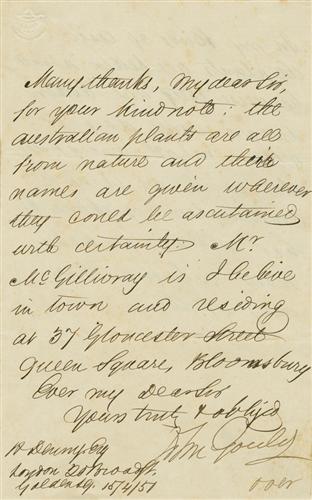 Many thanks, My dear Sir,
for your kind note: the
australian plants are all
from nature and their
names are given wherever
they could be ascertained
with certainty. Mr
McGillivray is I believe
in town and residing
at 37 Gloucester Street
Queen Square, Bloomsbury
Ever my dear Sir
Yours truly & oblig'd
John Gould
H Denny Esq
20 Broad St
Golden Sq. 15/4/51
over